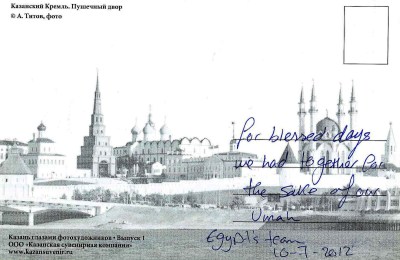 Казанский Кремль. Пушечный двор
© А. Титов, фото
For blessed days
we had together for
the sake of our
Umah
Egypt's team
10-7-2012
Казань глазами фотохудожников • Выпуск 1
ООО «Казанская сувенирная компания»
www.kazansuvenir.ru